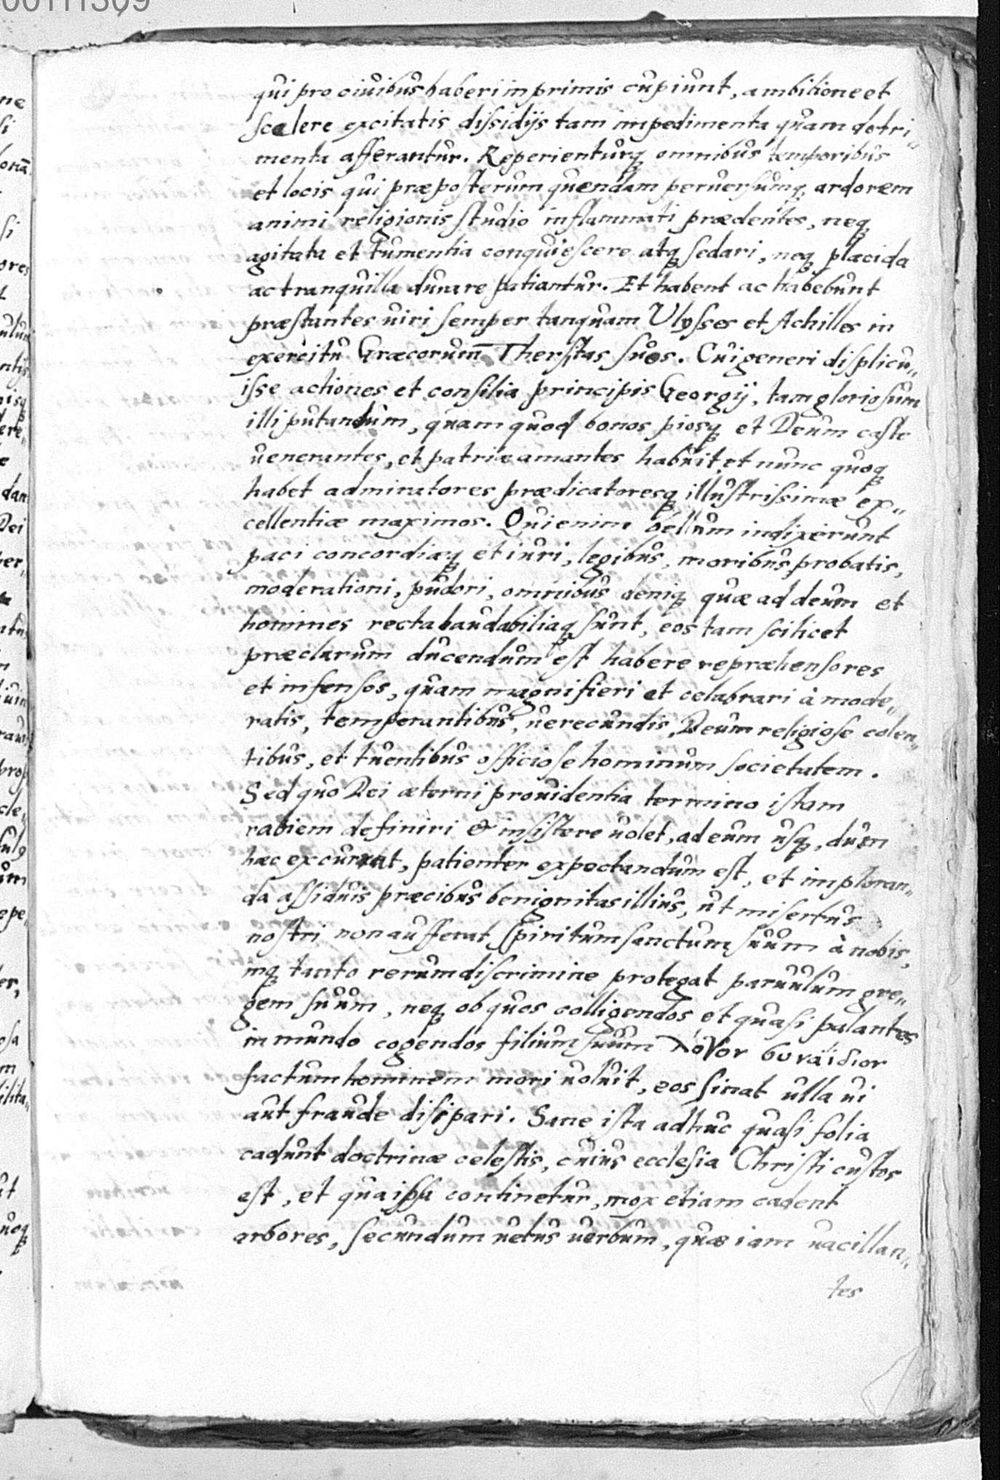 00111309
qui pro ciuibus haberi inprimis cupiunt, ambitione et
scelere excitatis dissidijs tam impedimenta quam detri„
menta afferantur. Reperienturq, omnibus temporibus
et locis qui præposterum quendam peruersumq, ardorem
animi religionis studio inflammati prædentes, neq,
agitata et tumentia conquiescere atq, sedari, neq, placida
ac tranquilla durare patiantur. Et habent ac habebunt
præstantes uiri semper tanquam Ulysses et Achilles in
exercitu Græcorum Thersitas suos. Cui generi displicu„
isse actiones et consilia principis Georgij, tam gloriosum
illi putandum, quam quod bonos piosq, et Deum caste
uenerantes, et patriæ amantes habuit et nunc quoq,
habet admiratores prædicatoresq, illustrissimæ ex„
cellentiæ maximos. Qui enim bellum indixerunt
paci concordiæq, et iuri, legibus, moribus probatis,
moderationi, pudori, omnibus deniq, quæ ad deum et
homines recta laudabiliaq, sunt, eos tam scilicet
præclarum ducendum est habere repræhensores
et infensos, quam magnifieri et celabrari à mode„
ratis, temperantibus, uerecundis, Deum religiose colen„
tibus, et tuentibus officiose hominum societatem.
Sed quo Dei æterni prouidentia termino istam
rabiem definiri & insistere uolet, ad eum usq, dum
hæc excurrat, patienter expectandum est, et imploran„
da assiduis præcibus benignitas illius, ut misertus
nostri non aufferat Spiritum sanctum suum à nobis,
inq, tanto rerum discrimine protegat paruulum gre„
gem suum, neq, ob quos colligendos et quasi palantes
in mundo cogendos filium suum λόγον συναΐδιον
factum hominem mori uoluit, eos sinat ulla ui
aut fraude disipari. Sane ista adhuc quasi folia
cadunt doctrinæ celestis, cuius ecclesia Christi custos
est, et qua ipsa continetur, mox etiam cadent
arbores, secundum uetus uerbum, quæ iam uacillan„
tes